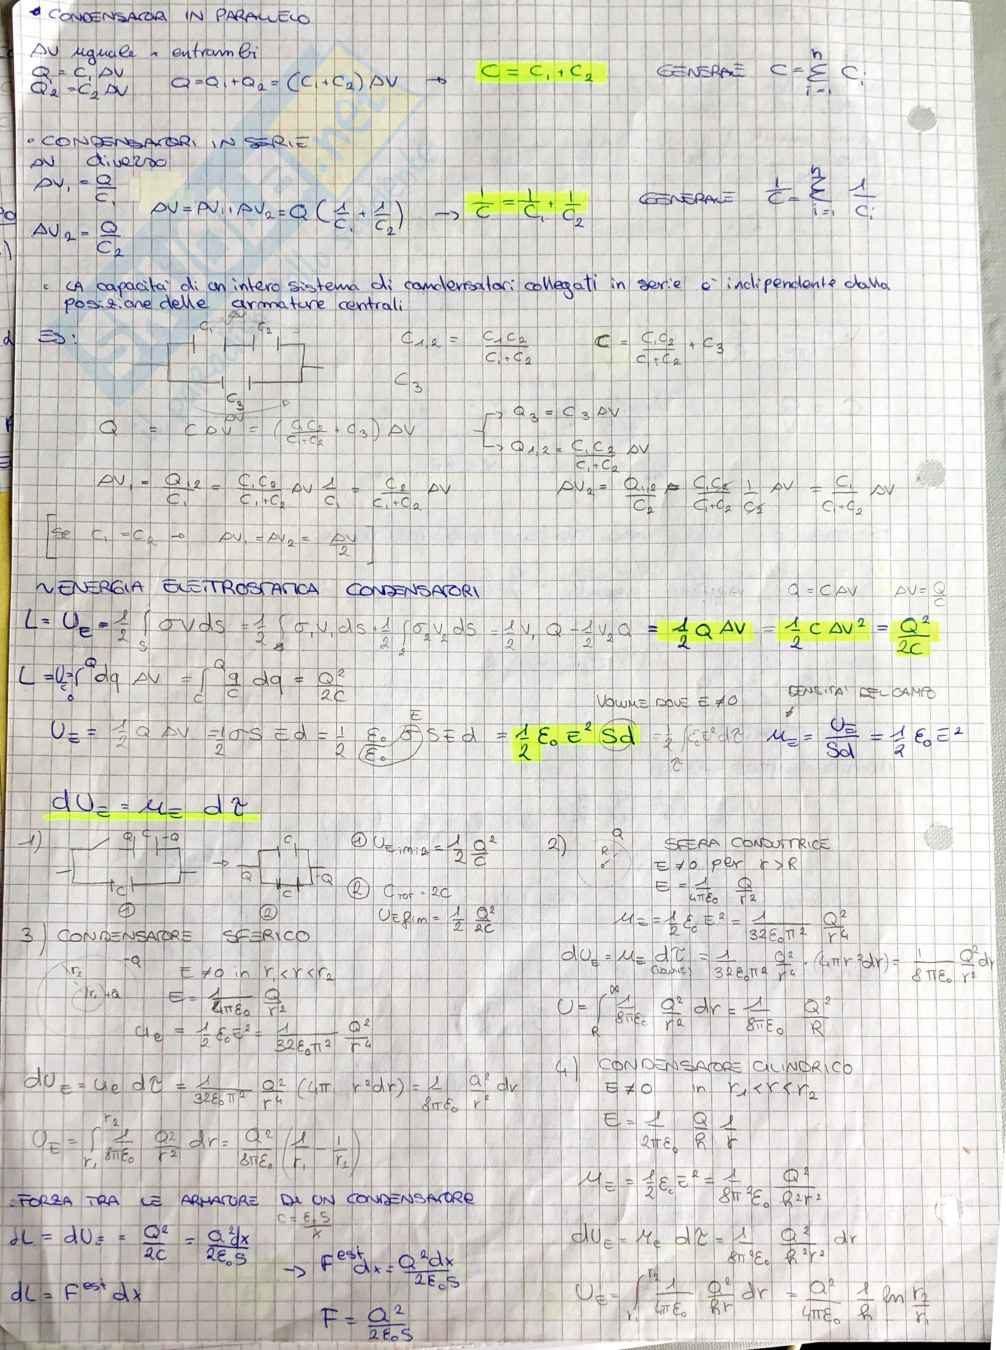 • CONDENSATORI IN PARALLELO
ΔV uguale x entrambi
Q₁ = C₁ΔV
Q₂ = C₂ΔV
Q = Q₁ + Q₂ = (C₁ + C₂) ΔV → C = C₁ + C₂ GENERALE C = Σ(i=1, n) Cᵢ
• CONDENSATORI IN SERIE
ΔV diverso
ΔV₁ = Q/C₁
ΔV = ΔV₁ + ΔV₂ = Q (1/C₁ + 1/C₂) → 1/C = 1/C₁ + 1/C₂ GENERALE 1/C = Σ(i=1, n) 1/Cᵢ
ΔV₂ = Q/C₂
• LA capacità di un intero sistema di condensatori collegati in serie è indipendente dalla
posizione delle armature centrali
ES: C₁ C₂ C₁,₂ = C₁C₂/(C₁+C₂) C = C₁C₂/(C₁+C₂) + C₃
C₃
C₃
ΔV
Q = CΔV = (C₁C₂/(C₁+C₂) + C₃) ΔV → Q₃ = C₃ΔV
→ Q₁,₂ = C₁C₂/(C₁+C₂) ΔV
ΔV₁ = Q₁,₂/C₁ = C₁C₂/(C₁+C₂) ΔV 1/C₁ = C₂/(C₁+C₂) ΔV ΔV₂ = Q₁,₂/C₂ = C₁C₂/(C₁+C₂) 1/C₂ ΔV = C₁/(C₁+C₂) ΔV
[se C₁ = C₂ → ΔV₁ = ΔV₂ = ΔV/2]
~ ENERGIA ELETTROSTATICA CONDENSATORI Q = CΔV ΔV = Q/C
L = U_E = 1/2 ∫_S σV ds = 1/2 ∫₁ σ₁V₁ ds + 1/2 ∫₂ σ₂V₂ ds = 1/2 V₁Q - 1/2 V₂Q = 1/2 QΔV = 1/2 CΔV² = Q²/2C
L = U_E = ∫₀^Q dq ΔV = ∫₀^Q q/C dq = Q²/2C
VOLUME DOVE E ≠ 0 DENSITA' DEL CAMPO
U_E = 1/2 QΔV = 1/2 σS Ed = 1/2 ε₀ σ/ε₀ S E d = 1/2 ε₀E² Sd = 1/2 ∫_τ ε₀E² dτ μ_E = U_E/Sd = 1/2 ε₀E²
E
dU_E = μ_E dτ
1) Q C -Q → C ① U_E iniz = 1/2 Q²/C
C Q C -Q ② C_TOT = 2C
① ② U_E fin = 1/2 Q²/2C
2) Q SFERA CONDUTTRICE
R E ≠ 0 per r > R
E = 1/4πε₀ Q/r²
μ_E = 1/2 ε₀E² = 1/32ε₀π² Q²/r⁴
dU_E = μ_E dτ = 1/32ε₀π² Q²/r⁴ · (4πr²dr) = 1/8πε₀ Q²/r² dr
U = ∫_R^∞ 1/8πε₀ Q²/r² dr = 1/8πε₀ Q²/R
3) CONDENSATORE SFERICO
r₂ -Q E ≠ 0 in r₁<r<r₂
r₁ +Q E = 1/4πε₀ Q/r²
u_e = 1/2 ε₀E² = 1/32ε₀π² Q²/r⁴
dU_E = u_e dτ = 1/32ε₀π² Q²/r⁴ (4π r²dr) = 1/8πε₀ Q²/r² dr
U_E = ∫_r₁^r₂ 1/8πε₀ Q²/r² dr = Q²/8πε₀ (1/r₁ - 1/r₂)
4) CONDENSATORE CILINDRICO
E ≠ 0 in r₁<r<r₂
E = 1/2πε₀ Q/h 1/r
μ_E = 1/2 ε₀E² = 1/8π²ε₀ Q²/h²r²
dU_E = μ_E dτ = 1/8π²ε₀ Q²/h²r² dr
U_E = ∫_r₁^r₂ 1/4πε₀ Q²/hr dr = Q²/4πε₀ 1/h ln r₂/r₁
• FORZA TRA LE ARMATURE DI UN CONDENSATORE
C = ε₀S/x
dL = dU_E = Q²/2C = Q²dx/2ε₀S
→ F^est dx = Q²dx/2ε₀S
dL = F^est dx
F = Q²/2ε₀S